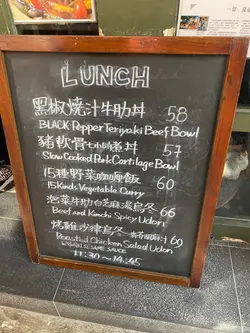 LUNCH
黑椒燒汁牛肋丼 58
BLACK Pepper Teriyaki Beef Bowl
豬軟骨 丼 57
Slow Cooked Pork Cartilage Bowl
15種野菜咖喱飯 60
15 Kinds Vegetable Curry
泡菜牛肋白芝麻湯烏冬 66
Beef and Kimchi Spicy Udon
燒雞沙律烏冬 60
Roasted Chicken Salad Udon
SESAME SAUCE
11:30~14:45